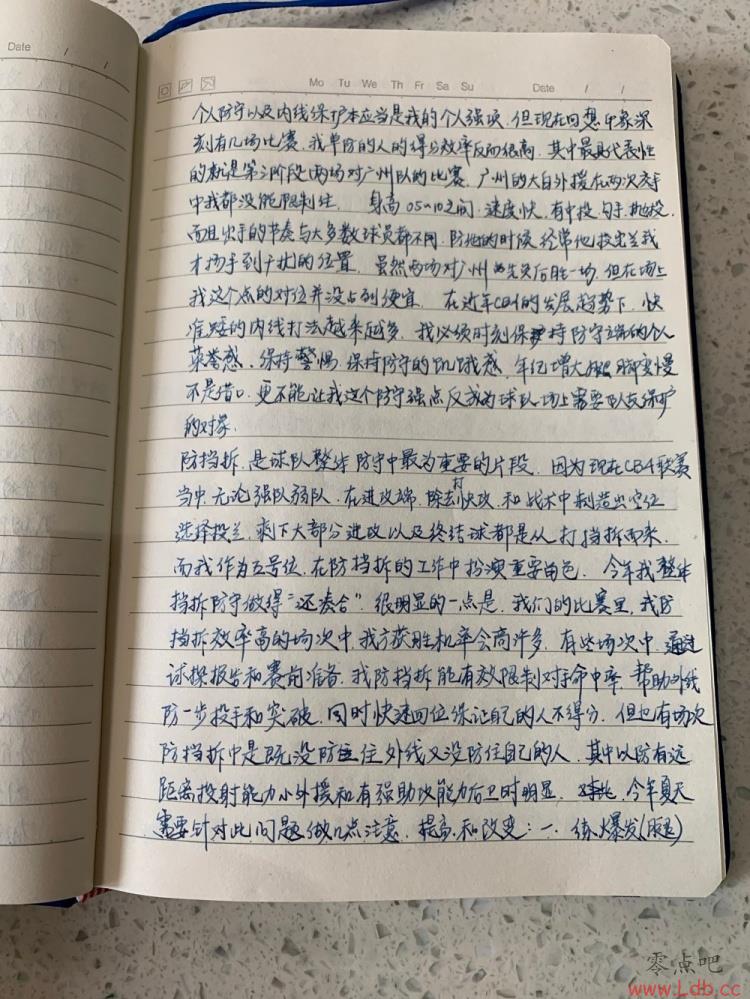 Date / /
Mo Tu We Th Fr Sa Su Date / /
个人防守以及内线保护本应当是我的个人强项,但现在回想印象深
刻有几场比赛,我单防的人的得分效率反而很高,其中最具代表性
的就是第三阶段两场对广州队的比赛,广州的大白外援在两次交手
中我都没能限制住. 身高05~10之间,速度快,有中投,勾手,抛投,
而且出手的节奏与大多数球员都不同,防他的时候经常他投出去我
才扬手到干扰的位置. 虽然两场对广州先负后胜一场,但在场上
我这个点的对位并没占到便宜. 在近年CBA的发展趋势下,快
准矮的内线打法越来越多,我必须时刻保持防守端的个人
荣誉感,保持警惕,保持防守的饥饿感,年纪增大脚步变慢
不是借口,更不能让我这个防守强点反成为球队场上需要队友保护
的对象.
防挡拆,是球队整体防守中最为重要的片段,因为现在CBA联赛
当中,无论强队弱队,在进攻端,除去打快攻,和战术中制造出空位
选择投篮,剩下大部分进攻以及终结球都是从打挡拆而来,
而我作为五号位,在防挡拆的工作中扮演重要角色. 今年我整体
挡拆防守做得“还凑合”,很明显的一点是,我们的比赛里,我防
挡拆效率高的场次中,我方获胜机率会高许多,有些场次中,通过
试探报告和赛前准备,我防挡拆能有效限制对手命中率,帮助外线
防一步投手和突破,同时快速回位保证自己的人不得分,但也有场次
防挡拆中是既没防住外线又没防住自己的人,其中以防有远
距离投射能力小外援和有强助攻能力后卫时明显. 今年夏天
需要针对此问题做几点注意,提高,和改变:一.练爆发(腿)
零点吧
www.Ldb.cc